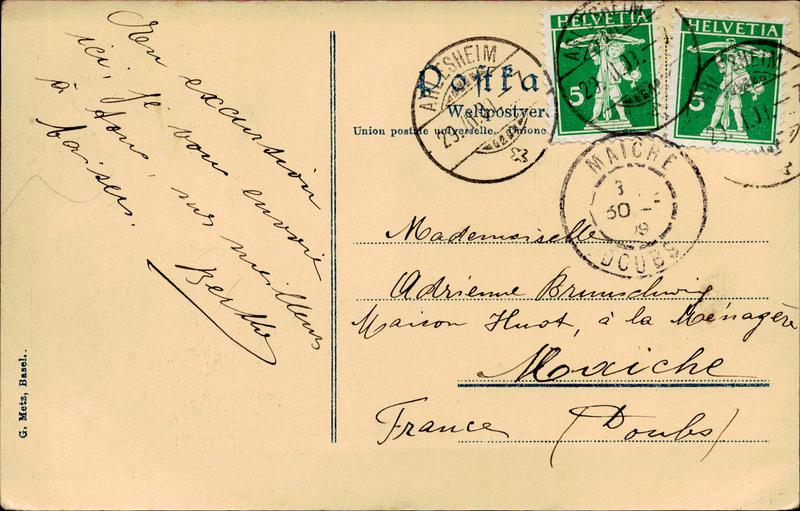 En excursion
ici, je vous envoie
à tous, mes meilleurs
baisers.
Berthe
Postka
Weltpostver
Union postale universelle.
HELVETIA
5
HELVETIA
5
ARLESHEIM
ARLESHEIM
MAICHE
30
DOUBS
Mademoiselle
Adrienne Brunschwig
Maison Huot, à la Ménagère
Maiche
France (Doubs)
G. Metz, Basel.